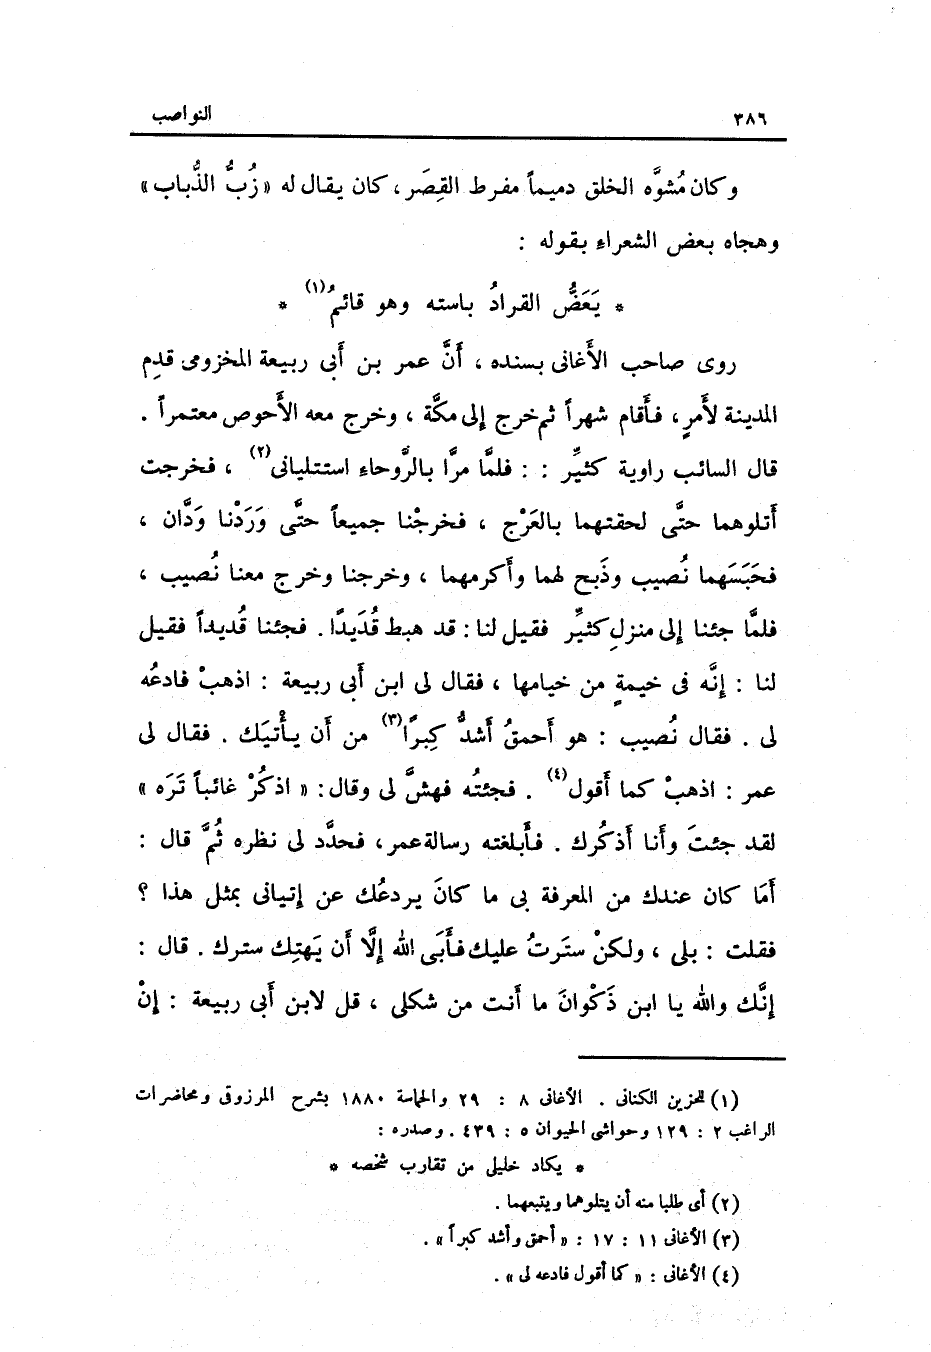 ٣٨٦ النواصب
وكان مُشوَّه الخلق دميماً مفرط القِصَر ، كان يقال له « زُبُّ الذُّباب »
وهجاه بعض الشعراء بقوله :
* يَعَضُّ القرادُ باسته وهو قائمُ(١) *
روى صاحب الأَغانى بسنده ، أَنَّ عمر بن أَبى ربيعة المخزومى قدِم
المدينة لأَمرٍ ، فأَقام شهراً ثم خرج إلى مكَّة ، وخرج معه الأَحوص معتمراً .
قال السائب راوية كثيِّر : : فلمَّا مرَّا بالرَّوحاء استتليانى(٢) ، فخرجت
أَتلوهما حتَّى لحقتهما بالعَرْج ، فخرجْنا جميعاً حتَّى وَرَدْنا وَدَّان ،
فحَبَسَهما نُصيب وذَبح لهما وأَكرمهما ، وخرجنا وخرج معنا نُصيب ،
فلمَّا جئنا إلى منزلِ كثيِّر فقيل لنا : قد هبط قُدَيدًا . فجئنا قُديداً فقيل
لنا : إنَّه فى خيمةٍ من خيامها ، فقال لى ابن أَبى ربيعة : اذهبْ فادعُه
لى . فقال نُصيب : هو أَحمقُ أَشدُّ كِبرًا(٣) من أَن يأْتيَك . فقال لى
عمر : اذهبْ كما أَقول(٤) . فجئتُه فهشَّ لى وقال : « اذكُرْ غائباً تَرَه »
لقد جئتَ وأَنا أَذكُرك . فأَبلغته رسالة عمر ، فحدَّد لى نظره ثُمَّ قال :
أَمَا كان عندك من المعرفة بى ما كانَ يردعُك عن إتيانى بمثل هذا ؟
فقلت : بلى ، ولكنْ ستَرتُ عليك فأَبَى الله إلَّا أَن يَهتِك سترك . قال :
إنَّك والله يا ابن ذَكْوانَ ما أَنت من شكلى ، قل لابن أَبى ربيعة : إنْ
(١) للحزين الكنانى . الأغانى ٨ : ٢٩ والحماسة ١٨٨٠ بشرح المرزوقى ومحاضرات
الراغب ٢ : ١٢٩ وحواشى الحيوان ٥ : ٤٣٩ . وصدره :
* يكاد خليلى من تقارب شخصه *
(٢) أى طلبا منه أن يتلوهما ويتبعهما .
(٣) الأغانى ١١ : ١٧ : « أحمق وأشد كبراً » .
(٤) الأغانى : « كما أقول فادعه لى » .